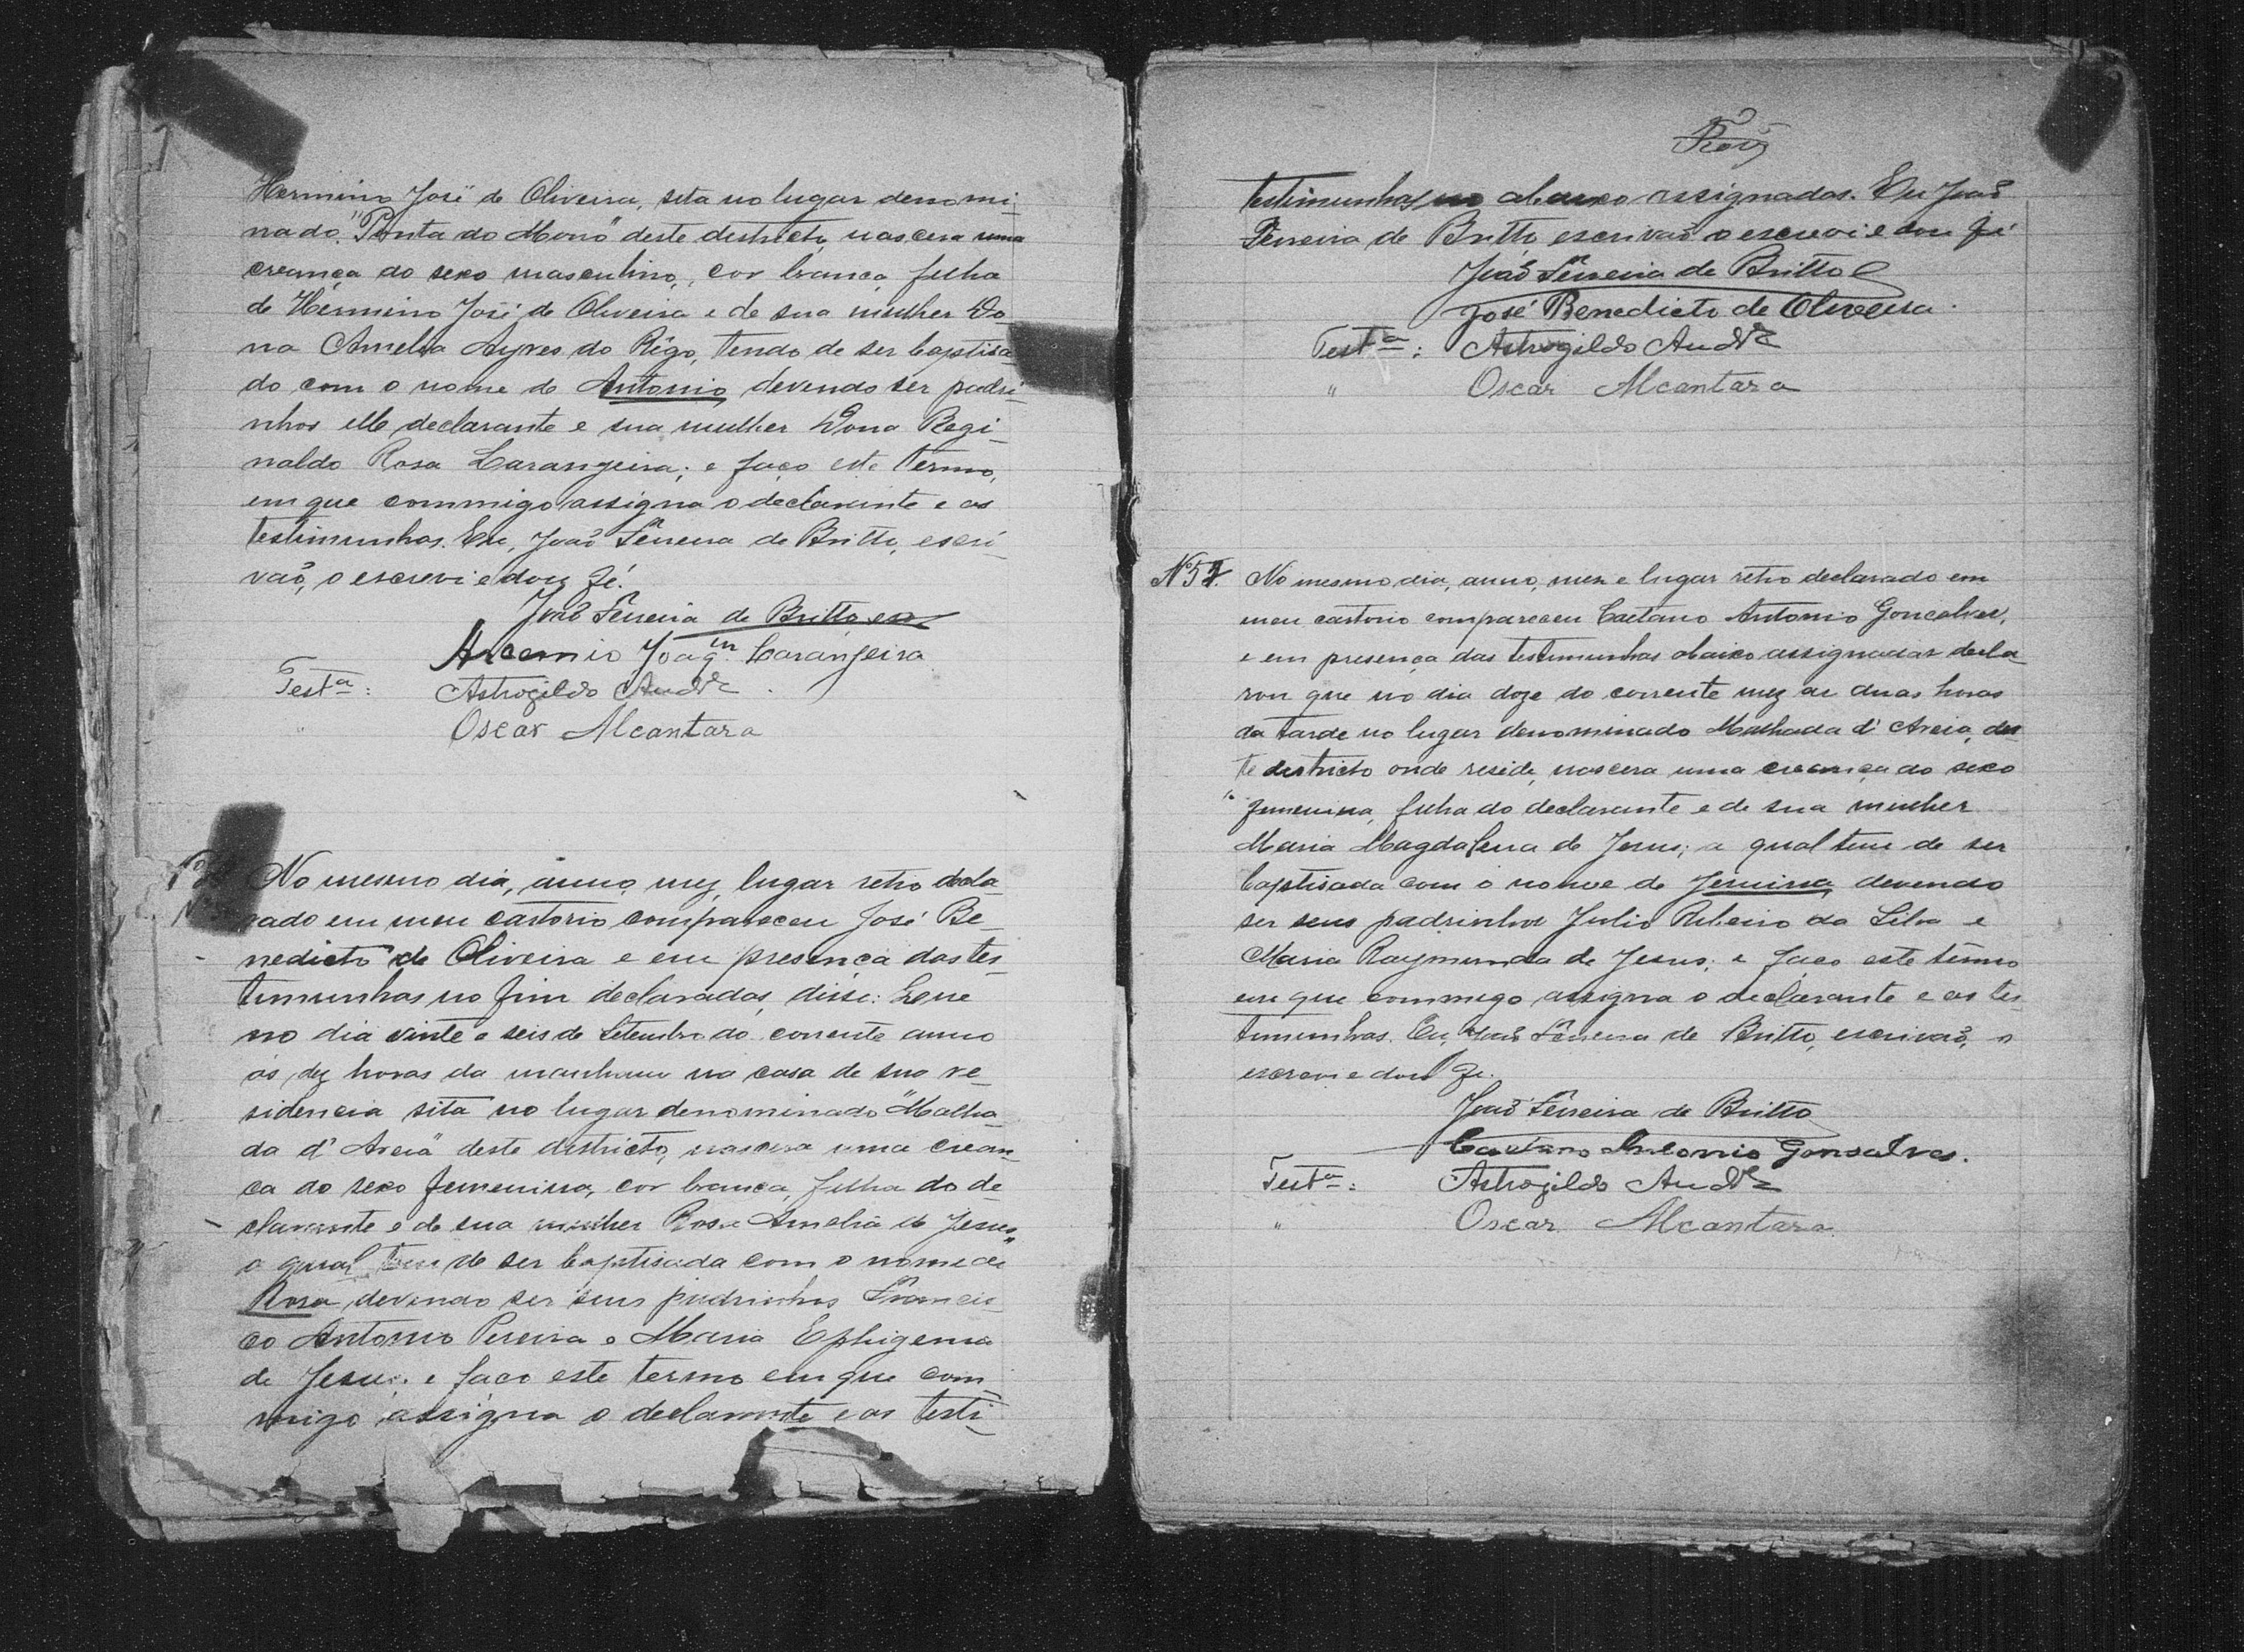 Hermino José de Oliveira, sita no lugar denomi-
nado "Ponta do Morro" deste districto, nascera uma
creança do sexo masculino, cor branca, filha
de Hermino José de Oliveira e de sua mulher Do-
na Amelia Ayres do Rêgo, tendo de ser baptisa-
do com o nome de Antonio, devendo ser padri-
nhos elle declarante e sua mulher Dona Regi-
nalda Rosa Larangeira; e faço este termo,
em que commigo assigna o declarante e as
testimunhas. Eu, João Ferreira de Britto, escri-
vão, o escrevi e dou fé.
João Ferreira de Britto
Arcemio Joaqm Laranjeira
Testa: Astrogildo Andre
" Oscar Alcantara
No mesmo dia, anno, mez, lugar retro decla-
rado em meu cartorio compareceu José Be-
nedicto de Oliveira e em presença das tes-
timunhas no fim declaradas, disse: Que
no dia vinte e seis de Setembro do corrente anno
ás dez horas da manhan na casa de sua re-
sidencia sita no lugar denominado "Malha-
da d'Areia" deste districto, nascera uma crean-
ca do sexo femenina, cor branca, filha do de-
clarante e de sua mulher Rosa Amelia de Jesus,
a qual tem de ser baptisada com o nome de
Rosa, devendo ser seus padrinhos Francis-
co Antonio Pereira e Maria Ephigenia
de Jesus, e faço este termo em que com-
migo assigna o declarante e as testi-
testimunhas no abaixo assignadas. Eu João
Ferreira de Britto escrivão o escrevi e dou fé
João Ferreira de Britto
José Benedicto de Oliveira.
Testa: Astrogildo Andre
" Oscar Alcantara
Nº 57 No mesmo dia, anno, mez e lugar retro declarado em
meu cartorio compareceu Caetano Antonio Gonçalves,
e em presença das testimunhas abaixo assignadas decla-
rou que no dia doze do corrente mez as duas horas
da tarde no lugar denominado Malhada d'Areia, des-
te districto onde reside, nascera uma creança do sexo
femenina, filha do declarante e de sua mulher
Maria Magdalena de Jesus; a qual tem de ser
baptisada com o nome de Jesuina, devendo
ser seus padrinhos Julio Ribeiro da Silva e
Maria Raymunda de Jesus; e faço este termo
em que commigo assigna o declarante e as tes-
timunhas. Eu, João Ferreira de Britto, escrivão, o
escrevi e dou fé.
João Ferreira de Britto
Caetano Antonio Gonsalves.
Testa: Astrogildo Andre
" Oscar Alcantara